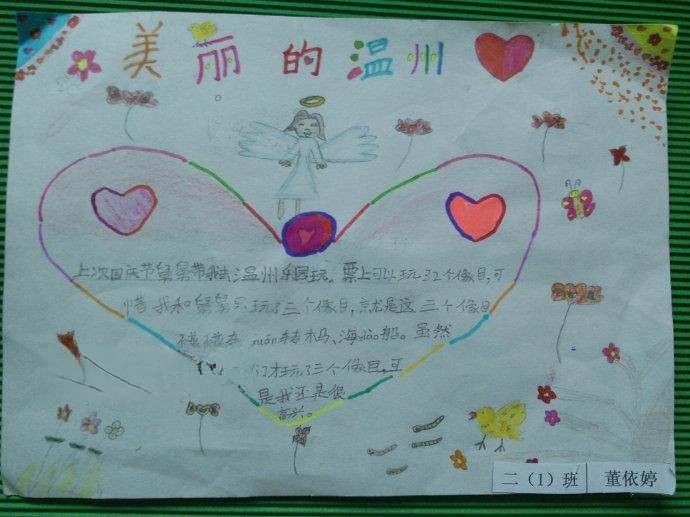 美丽的温州
上次国庆节舅舅带我去温州乐园玩。票上可以玩32个像目,可
惜我和舅舅只玩了三个像目,京就是这三个像目
碰碰车 xuán转木马、海dào船。虽然
们才玩了三个像目,可
是我还是很
高兴。
二（1）班 董依婷